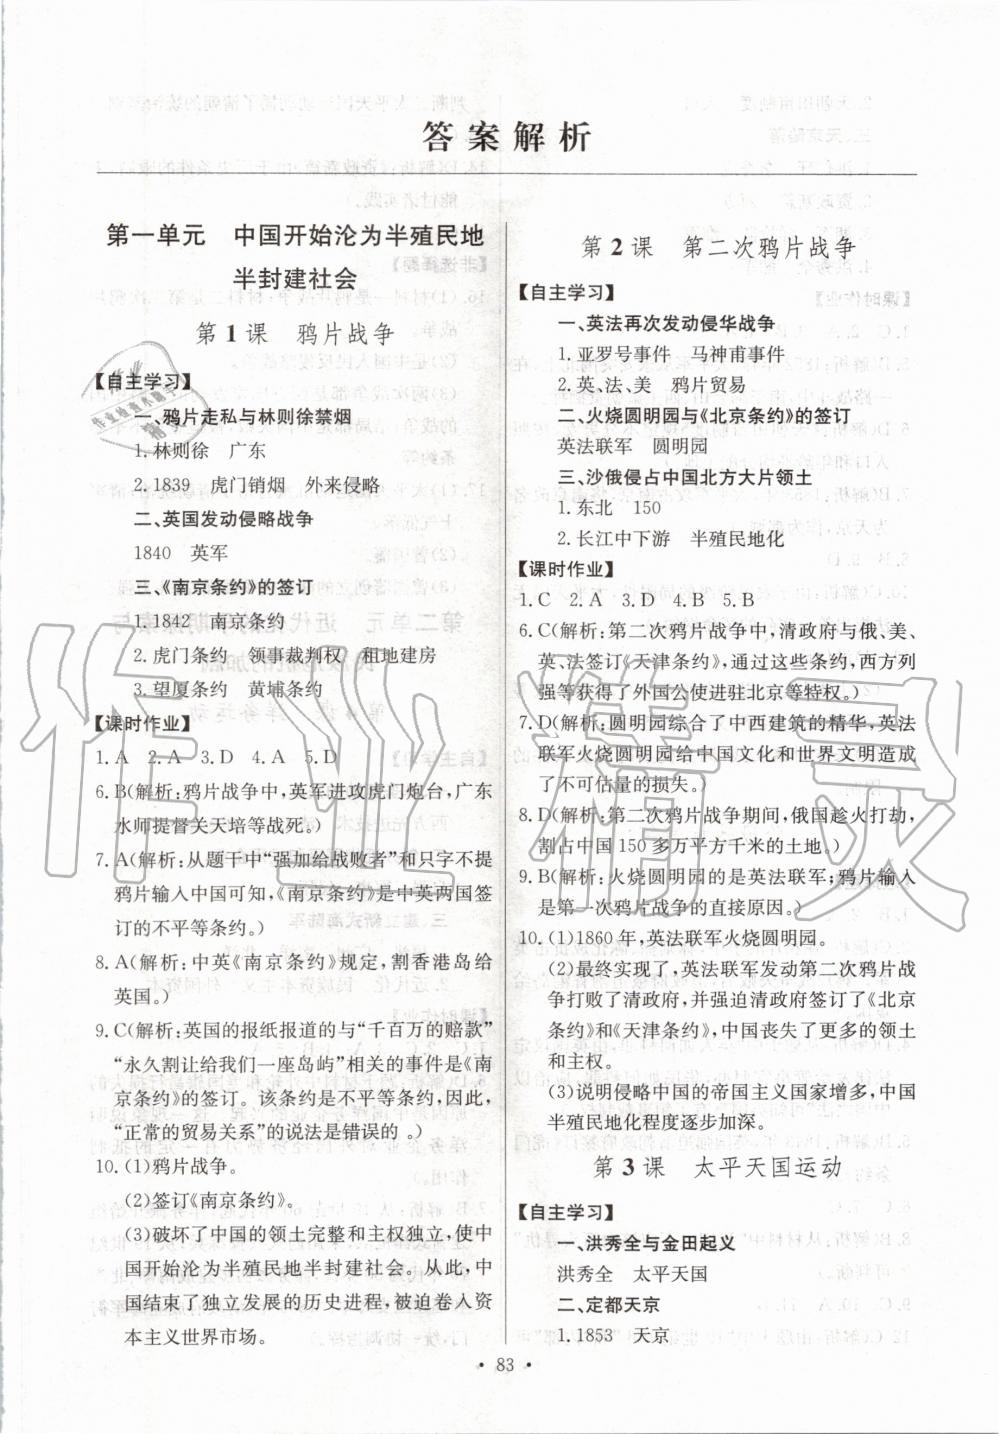 答案解析
第一单元　中国开始沦为半殖民地
半封建社会
第1课　鸦片战争
【自主学习】
一、鸦片走私与林则徐禁烟
1.林则徐　广东
2.1839　虎门销烟　外来侵略
二、英国发动侵略战争
1840　英军
三、《南京条约》的签订
1.1842　南京条约
2.虎门条约　领事裁判权　租地建房
3.望厦条约　黄埔条约
【课时作业】
1.A　2.A　3.D　4.A　5.D
6.B(解析:鸦片战争中,英军进攻虎门炮台,广东
水师提督关天培等战死。)
7.A(解析:从题干中“强加给战败者”和只字不提
鸦片输入中国可知,《南京条约》是中英两国签
订的不平等条约。)
8.A(解析:中英《南京条约》规定,割香港岛给
英国。)
9.C(解析:英国的报纸报道的与“千百万的赔款”
“永久割让给我们一座岛屿”相关的事件是《南
京条约》的签订。该条约是不平等条约,因此,
“正常的贸易关系”的说法是错误的。)
10.(1)鸦片战争。
(2)签订《南京条约》。
(3)破坏了中国的领土完整和主权独立,使中
国开始沦为半殖民地半封建社会。从此,中
国结束了独立发展的历史进程,被迫卷入资
本主义世界市场。
第2课　第二次鸦片战争
【自主学习】
一、英法再次发动侵华战争
1.亚罗号事件　马神甫事件
2.英、法、美　鸦片贸易
二、火烧圆明园与《北京条约》的签订
英法联军　圆明园
三、沙俄侵占中国北方大片领土
1.东北　150
2.长江中下游　半殖民地化
【课时作业】
1.C　2.A　3.D　4.B　5.B
6.C(解析:第二次鸦片战争中,清政府与俄、美、
英、法签订《天津条约》,通过这些条约,西方列
强等获得了外国公使进驻北京等特权。)
7.D(解析:圆明园综合了中西建筑的精华,英法
联军火烧圆明园给中国文化和世界文明造成
了不可估量的损失。)
8.D(解析:第二次鸦片战争期间,俄国趁火打劫,
割占中国150多万平方千米的土地。)
9.B(解析:火烧圆明园的是英法联军;鸦片输入
是第一次鸦片战争的直接原因。)
10.(1)1860年,英法联军火烧圆明园。
(2)最终实现了,英法联军发动第二次鸦片战
争打败了清政府,并强迫清政府签订了《北京
条约》和《天津条约》,中国丧失了更多的领土
和主权。
(3)说明侵略中国的帝国主义国家增多,中国
半殖民地化程度逐步加深。
第3课　太平天国运动
【自主学习】
一、洪秀全与金田起义
洪秀全　太平天国
二、定都天京
1.1853　天京
· 83 ·
作业精灵